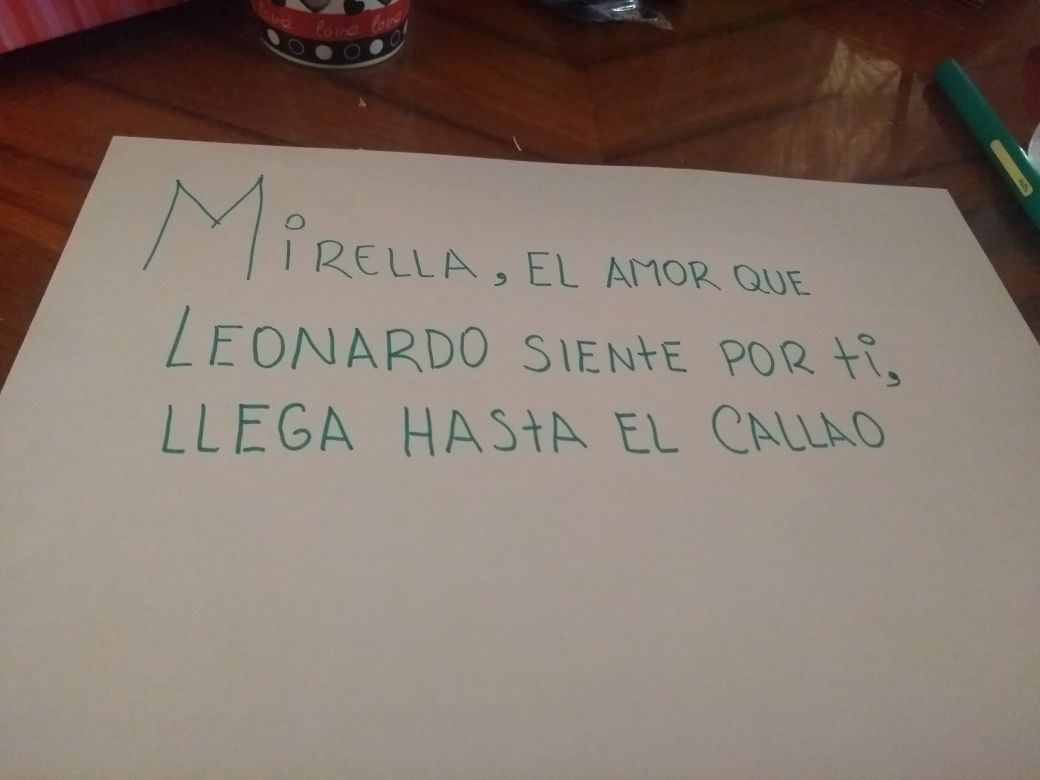 love love love
MiRELLA, EL AMOR QUE
LEONARDO SIENtE POR ti,
LLEGA HAStA EL CALLAO